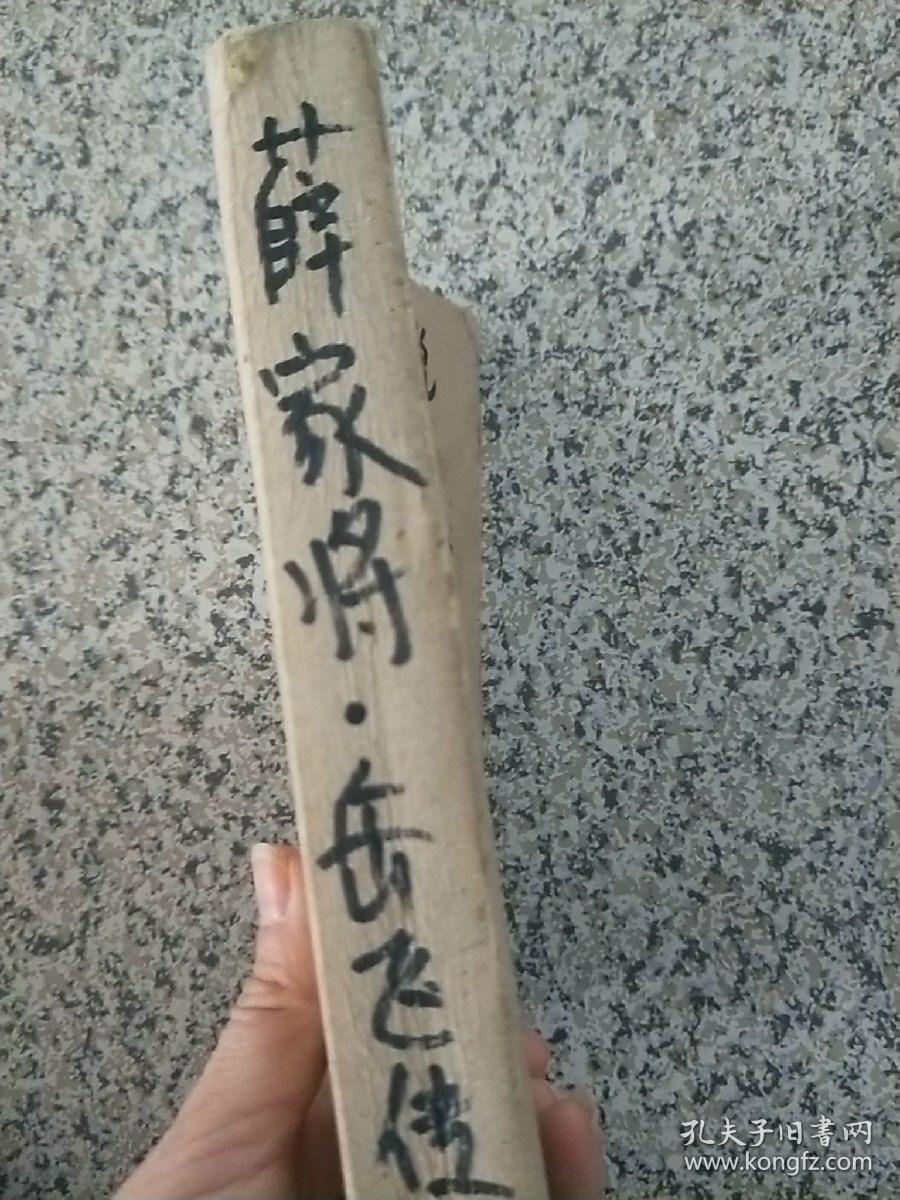 薛家将·岳飞传
孔夫子旧書网
www.kongfz.com